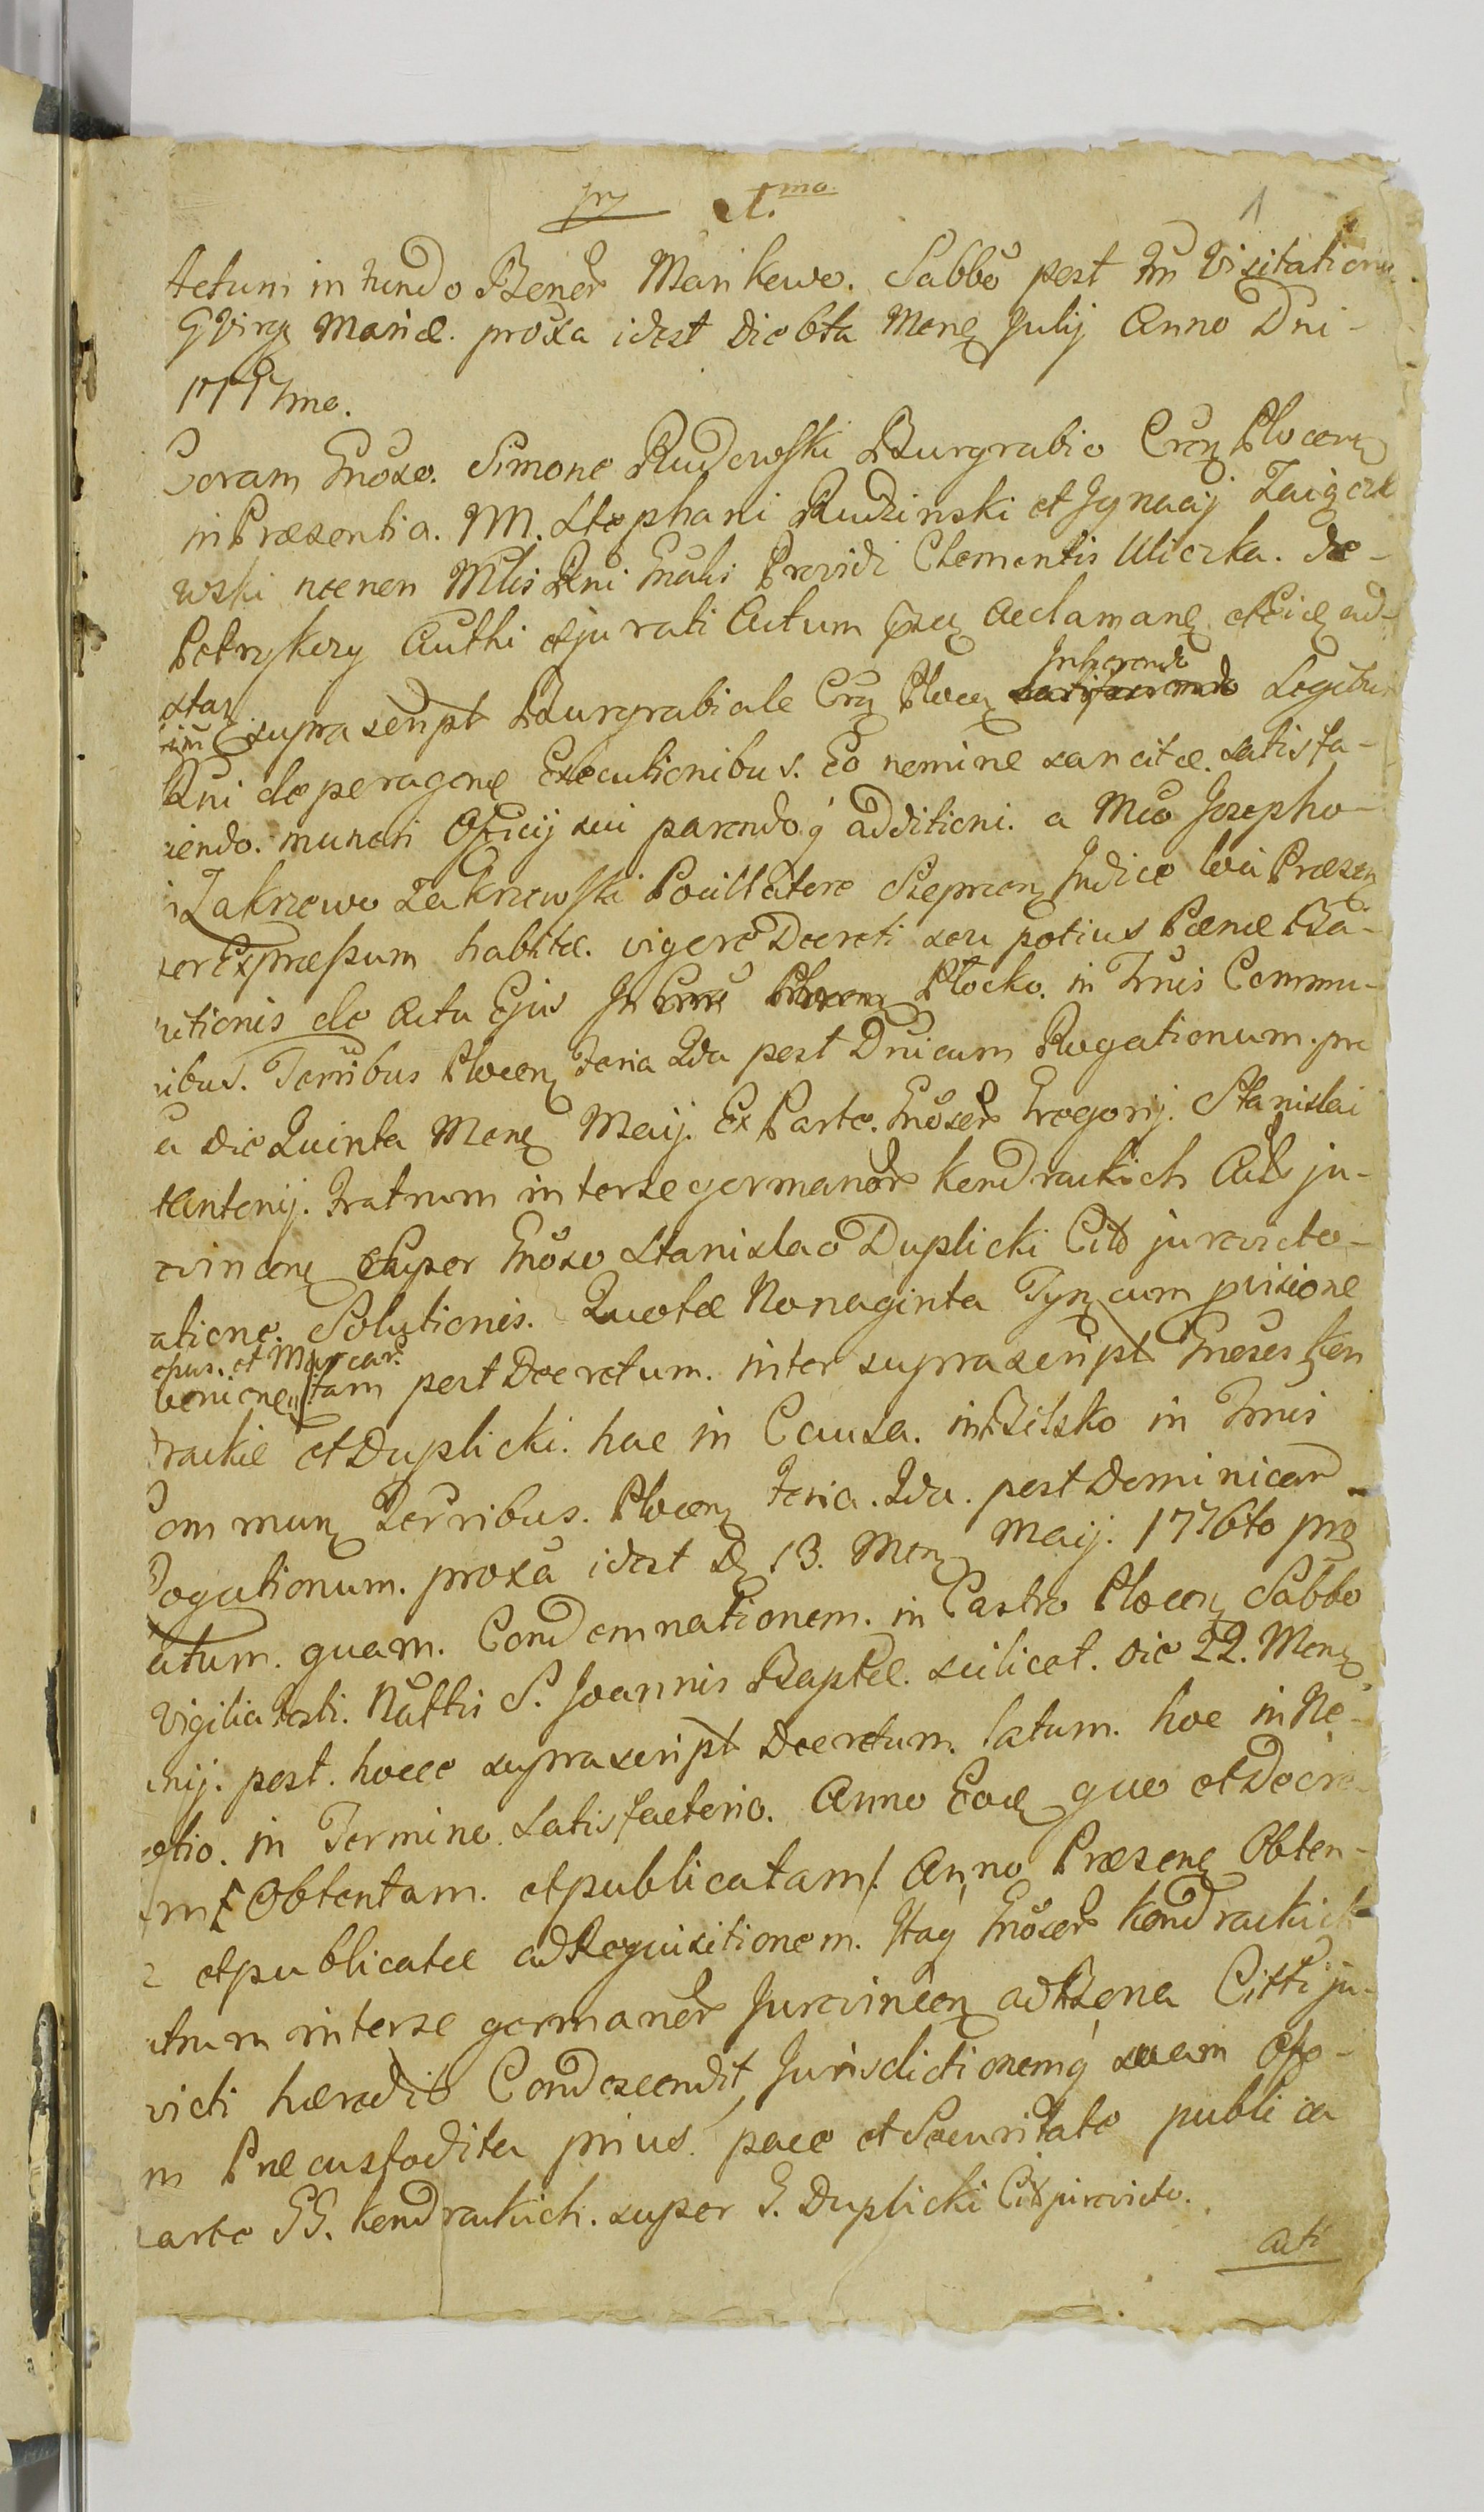 1
Actum in fundo Bonor Mankewo. Sabbo post Fm Visitationis
G Virg Mariæ. proxa idest die 6ta Mens Julij Anno Dni
1777mo.
Coram Gnoso. Simone Rudowski Burgrabio Cren Plocen
in Præsentia. M. Stephani Rudzinski et Ignacij
wski necnon Mlis Rni Gnalis Providi Clementis Uliczka. de
Petrykozy Authi et jurati Actum
suprascript Burgrabiale Plocen Inhærendo Legibus
Rni de peragen Executionibus. Eo nomine sancitæ. satisfa-
iendo. muneri Officij sui parendoq additioni. a Mco Josepho
Zakrzewo Zakrzewski Pocillatore Sieprcen Judice loci Præsen
Expræssum habitæ. vigore Decreti seu potius Pænæ Ba-
nitionis de Actu Ejus In Plocko. in Trnis Commu-
nibus. Terribus Plocen Feria 2da post Dnicam Rogationum. pro
a die Quinta Mens Maij. Ex Parte. Gnosor Gregorij. Stanislai
t Antonij. Fratrum inter se germanor Kendrackich Act ju-
evincen Super Gnoso Stanislao Duplicki Cito jurevicto-
atione. Solutionis. Quotæ Nonaginta Tyn cum pvisione
opus. et Murcar.
tam post Decretum. inter suprascript Gnosos Ken
rackie et Duplicki. hac in Causa. in Bilsko in Trnis
Commun Terribus. Plocen Feria. 2da. post Dominicam
Rogationum. proxa idest D 13. Men Maij. 1776to pro
atum. quam. Condemnationem. in Castro Plocen Sabbo
Vigilia Festi. Nattis S. Joannis Baptæ. scilicet. die 22. Mens
unij. post. hocce suprascript Decretum. latum. hoc in Ne-
otio. in Termino. Satisfactorio. Anno Eod quo et Decre
m Obtentam. et publicatam/. Anno Præsen Obten-
et publicatæ ad Requisitionem. Itaq Gnosor Kendrackich
atrum inter se germanor Jurevincen ad Bona Citti ju-
victi hæredit Condescendit, Jurisdictionemq suam
m Præcustodita prius. pace et Securitate publica
arte GG. Kendrackich. super G. Duplicki Cit jurevicto.
Acti